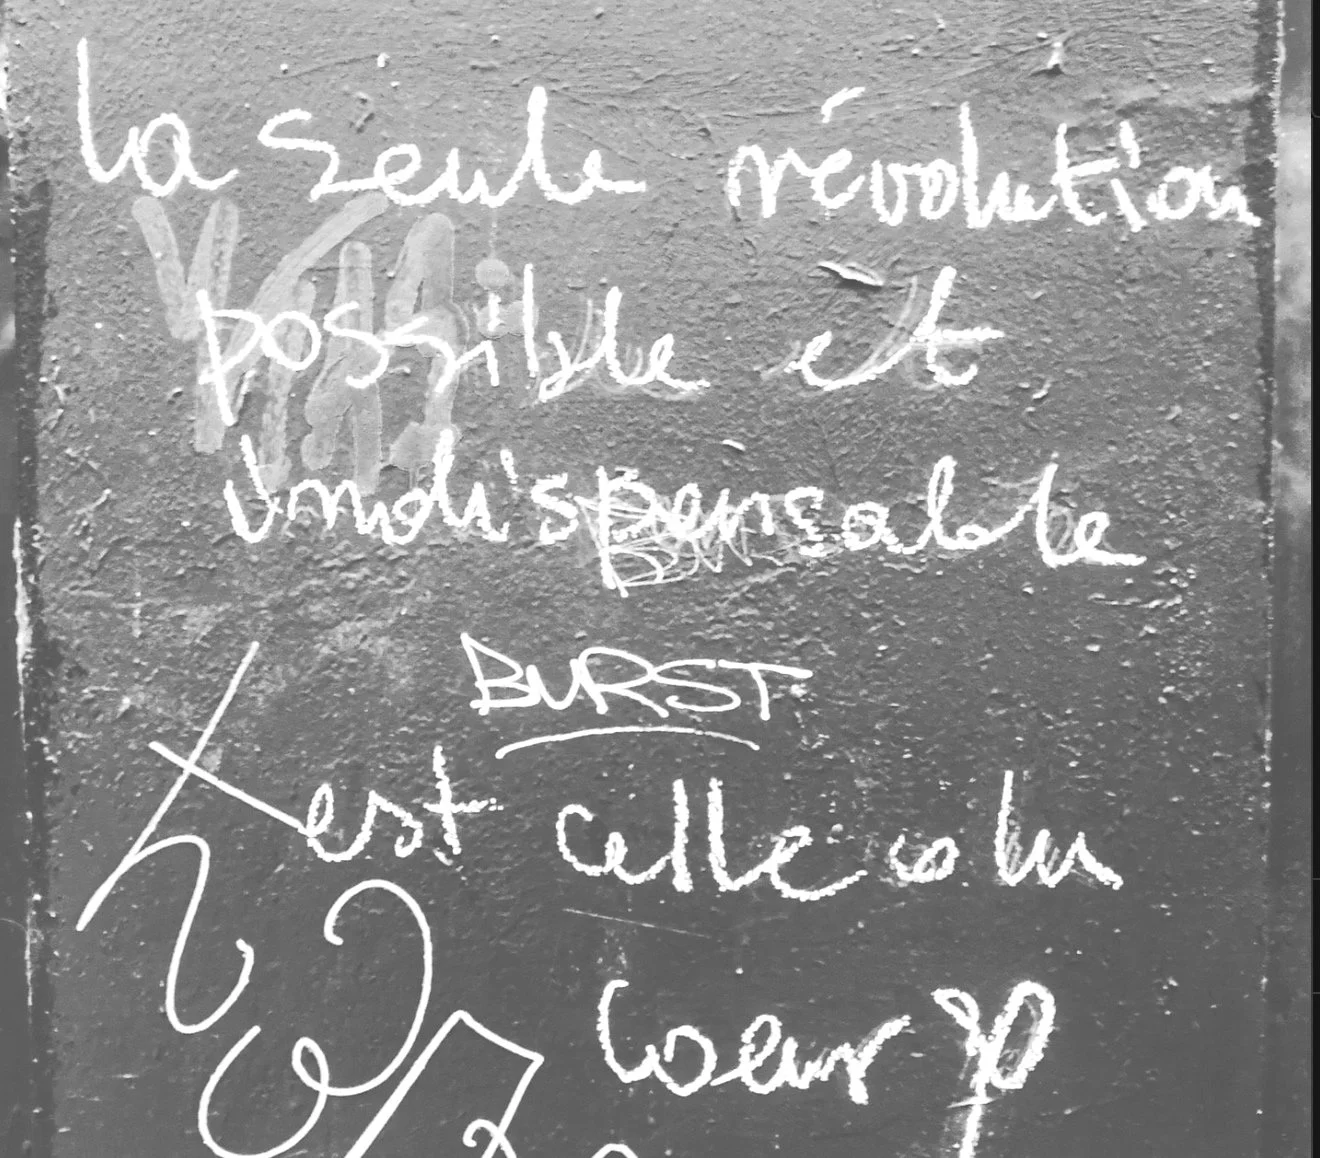 la seule révolution
possible et
indispensable
BURST
est celle du
coeur